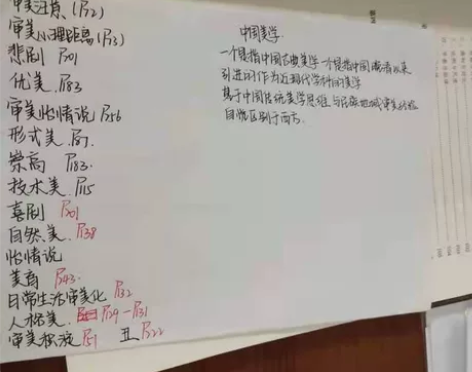 审美注意 (P72)
审美心理距离 (P73)
悲剧 P201
优美 P183
审美怡情说 P56
形式美 P87
崇高 P183
技术美 P115
喜剧 P201
自然美 P38
怡情说
美育 P243
日常生活审美化 P32
人格美 P29-P31
审美积淀 P51 丑 P222
中国美学
一个是指中国古典美学 一个是指中国晚清以来
引进的作为近现代学科的美学
基于中国传统美学思维 与民族地域审美经验
自觉区别于西方